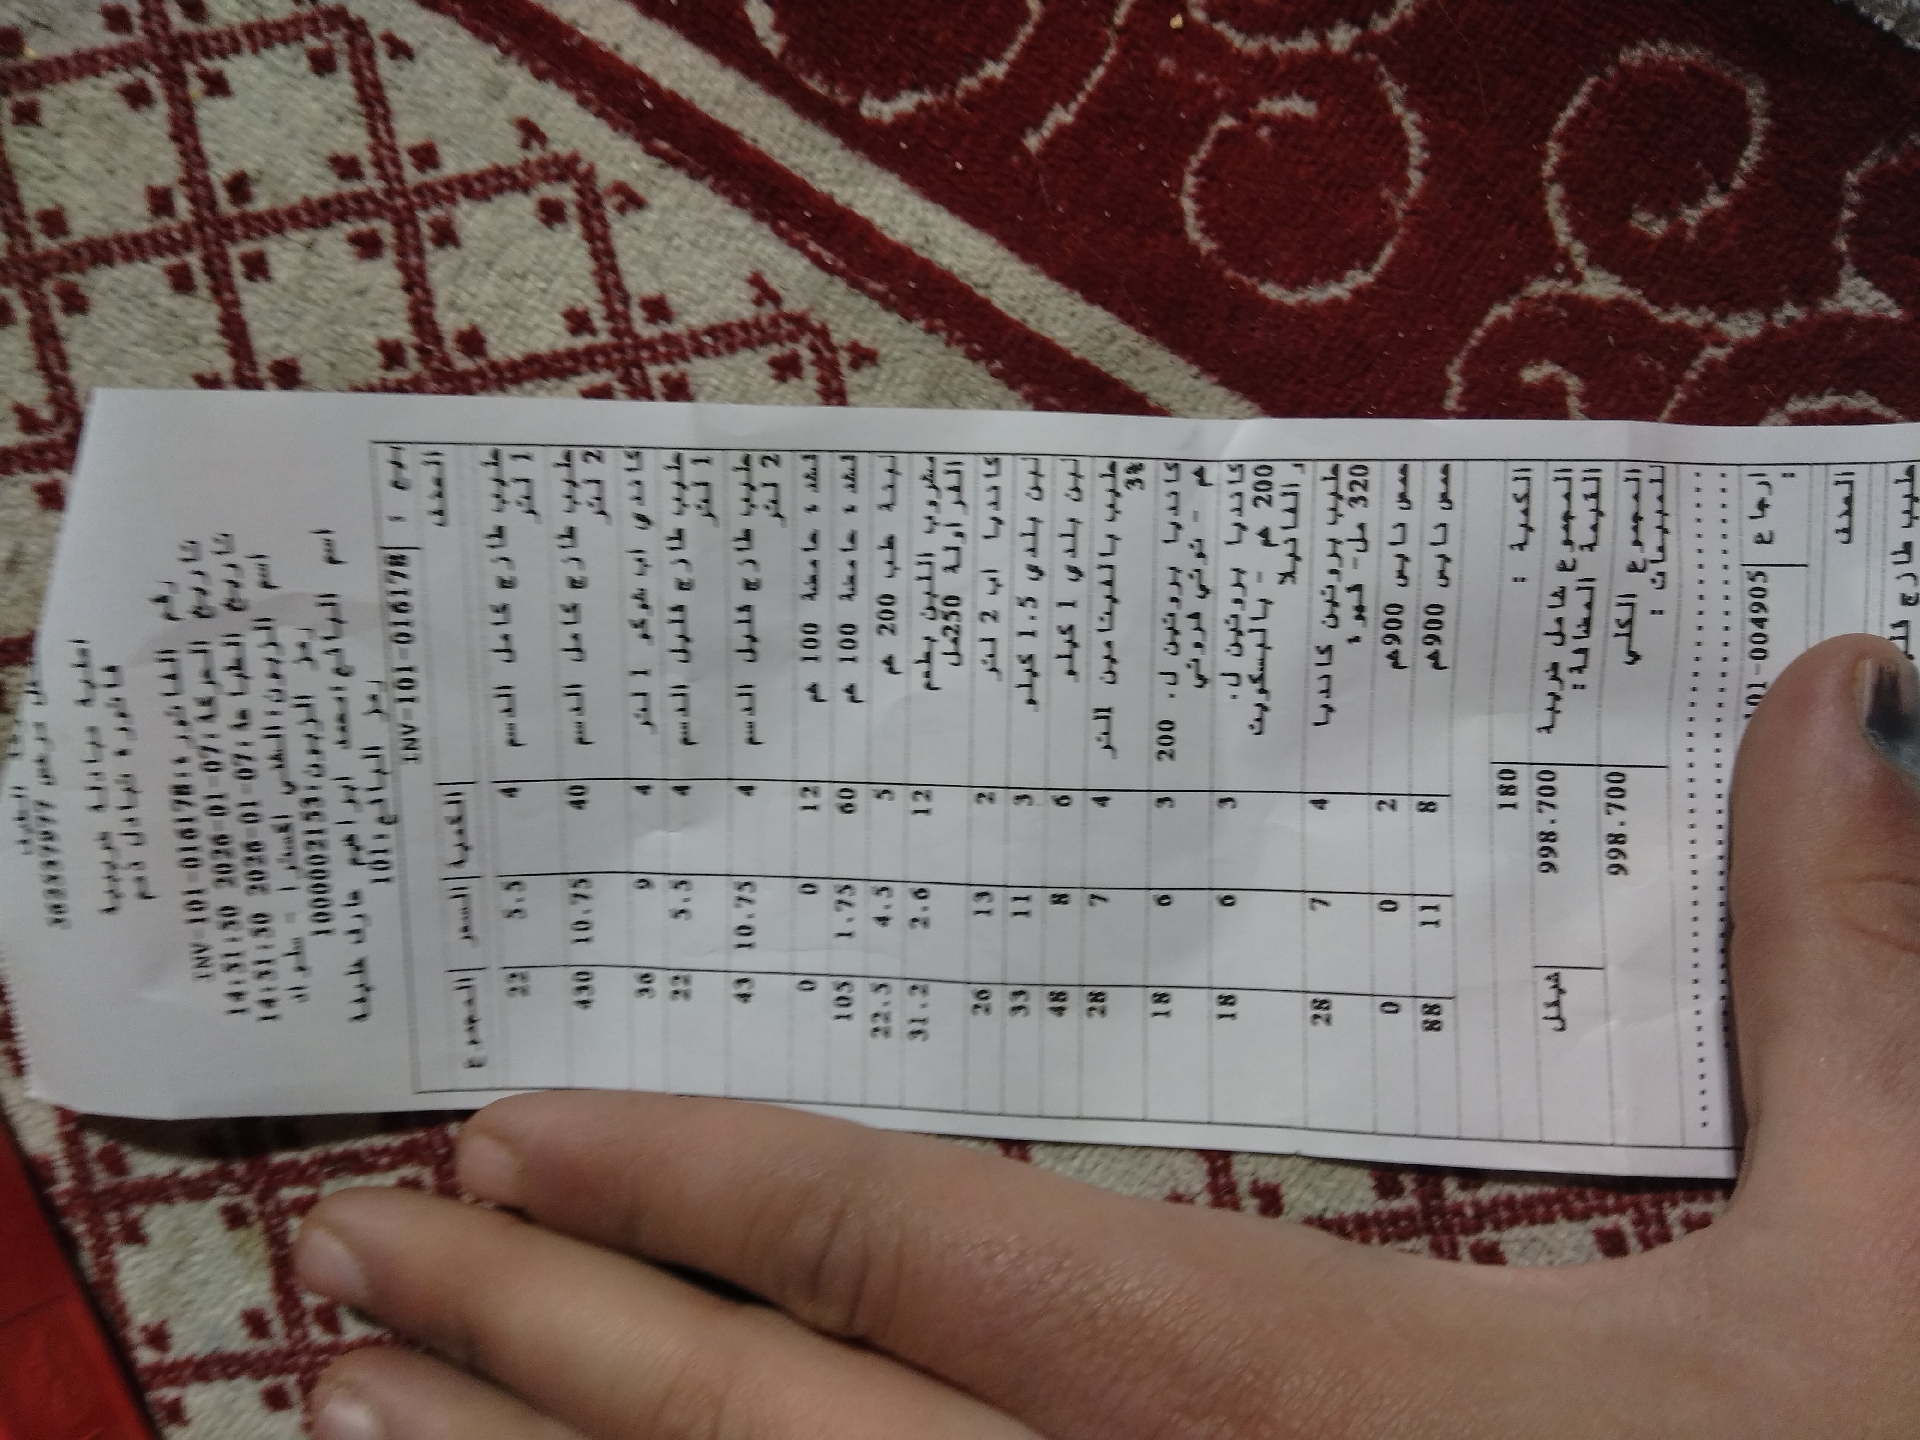 اصلية مبادلة ضريبية
فاتورة تبادل كم
رقم الفاتورة: INV-101-016178
تاريخ الحركة: 2026-01-07 14:31:30
تاريخ الطباعة: 2026-01-07 14:31:30
اسم الزبون:
رمز الزبون: 1000002133
اسم البائع: احمد ابراهيم عارف خليفة
رمز البائع: 101
بيع : INV-101-016178
الصنف الكمية السعر المجموع
حليب طازج كامل الدسم 4 5.5 22
1 لتر
حليب طازج كامل الدسم 40 10.75 430
2 لتر
كاندي اب شوكو 1 لتر 4 9 36
حليب طازج قليل الدسم 4 5.5 22
1 لتر
حليب طازج قليل الدسم 4 10.75 43
2 لتر
قشدة حامضة 100 غم 12 0 0
قشدة حامضة 100 غم 60 1.75 105
لبنة طب 200 غم 5 4.5 22.5
مشروب اللبن بطعم 12 2.6 31.2
الفراولة 250مل
كانديا اب 2 لتر 2 13 26
لبن بلدي 1.5 كيلو 3 11 33
لبن بلدي 1 كيلو 6 8 48
حليب بالفيتامين التر 4 7 28
3%
كانديا بروتين ل. 200 3 6 18
غم - توتي فروتي
كانديا بروتين ل. 3 6 18
200 غم - بالبسكويت
و الفانيلا
حليب بروتين كانديا 4 7 28
320 مل- قهوة
سس نايس 900غم 2 0 0
سس نايس 900غم 8 11 88
الكمية : 180
المجموع شامل ضريبة 998.700 شيكل
القيمة المضافة:
المجموع الكلي 998.700
للمبيعات :
ارجاع : 101-004905
الصنف
حليب طازج